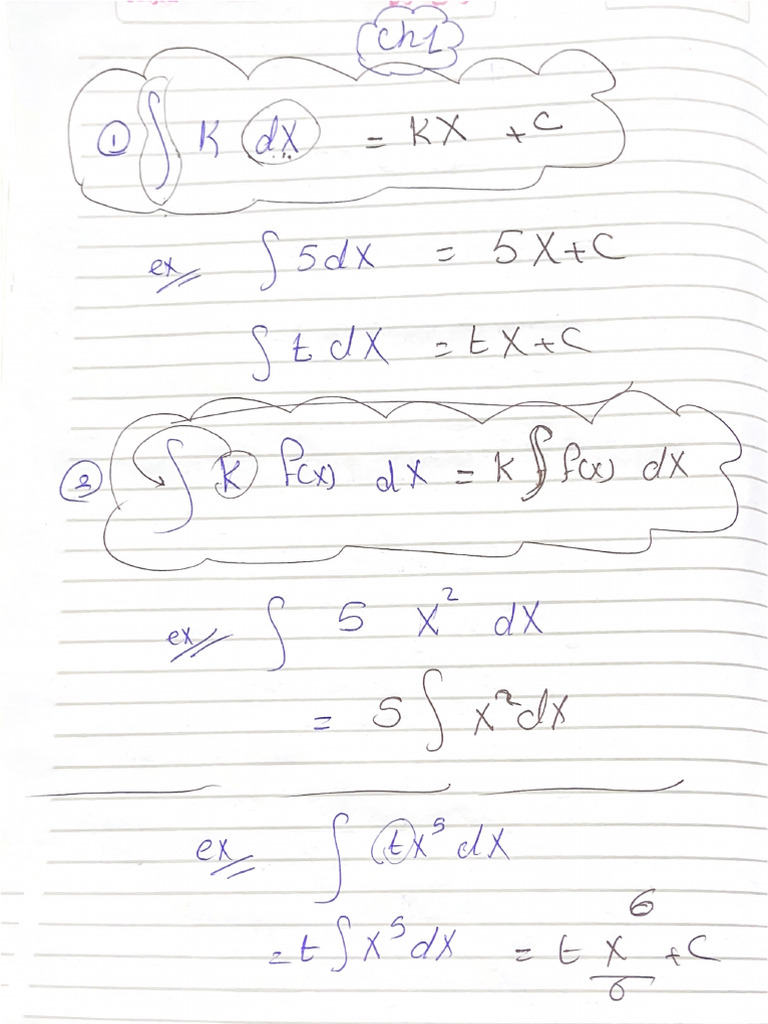 ch1
① ∫ K dx = Kx + C
ex ∫ 5dx = 5x+C
∫ t dx = tx+C
② ∫ K f(x) dx = K∫ f(x) dx
ex ∫ 5 x² dx
= 5 ∫ x² dx
ex ∫ t x⁵ dx
= t ∫ x⁵ dx = t x⁶/6 + C